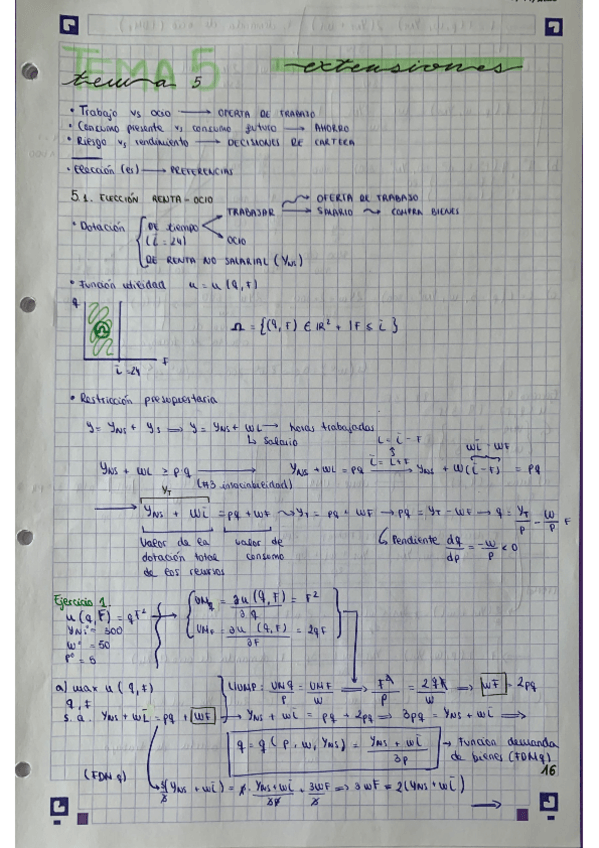 TEMA 5
tema 5
extensiones
• Trabajo vs ocio → OFERTA DE TRABAJO
• Consumo presente vs consumo futuro → AHORRO
• Riesgo vs rendimiento → DECISIONES DE CARTERA
• Elección (es) → PREFERENCIAS
5.1. ELECCIÓN RENTA - OCIO
• Dotación { DE tiempo (L̄ = 24) → TRABAJAR → OFERTA DE TRABAJO
→ SALARIO → COMPRA BIENES
→ OCIO
DE RENTA NO SALARIAL (Y_NS)
• Función utilidad u = u (q, F)
q
Ω
F
L̄ = 24
Ω = {(q, F) ∈ IR² + | F ≤ L̄ }
• Restricción presupuestaria
y = y_NS + y_S ⟹ y = y_NS + wL → horas trabajadas
↳ salario
L = L̄ - F
wL̄ - wF
y_NS + wL ≥ p·q → y_NS + wL = pq → L̄ = L + F y_NS + w(L̄ - F) = pq
(#3 insaciabilidad)
Y_T
→ y_NS + wL̄ = pq + wF ⤳ Y_T = pq + wF → pq = Y_T - wF → q = Y_T/p - w/p F
Valor de la dotación total de los recursos
valor de consumo
↳ Pendiente dq/dp = -w/p < 0
Ejercicio 1.
u (q, F) = qF²
y_NS = 300
w° = 50
p° = 5
UM_q = ∂u (q, F)/∂q = F²
UM_F = ∂u (q, F)/∂F = 2qF
a) max u (q, F)
q, F
s.a. y_NS + wL̄ = pq + wF
UMP: UM_q/p = UM_F/w ⟹ F²/p = 2qF/w ⟹ wF = 2pq
→ y_NS + wL̄ = pq + 2pq ⟹ 3pq = y_NS + wL̄ ⟹
q = q (p, w, y_NS) = y_NS + wL̄ / 3p → Función demanda de bienes (FDMq)
(FDM q)
↳ 3(y_NS + wL̄) = p · y_NS + wL̄/3p + 3wF ⟹ 3wF = 2(y_NS + wL̄)
16